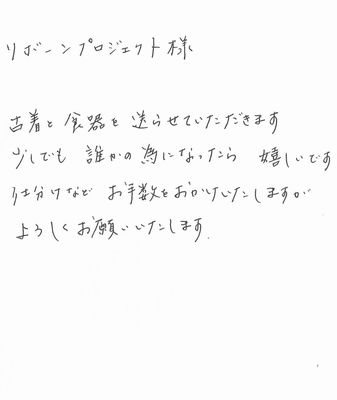 リボーンプロジェクト様
古着と食器を送らせていただきます
少しでも 誰かの為になったら 嬉しいです
仕分けなど お手数をおかけいたしますが
よろしくお願いいたします.